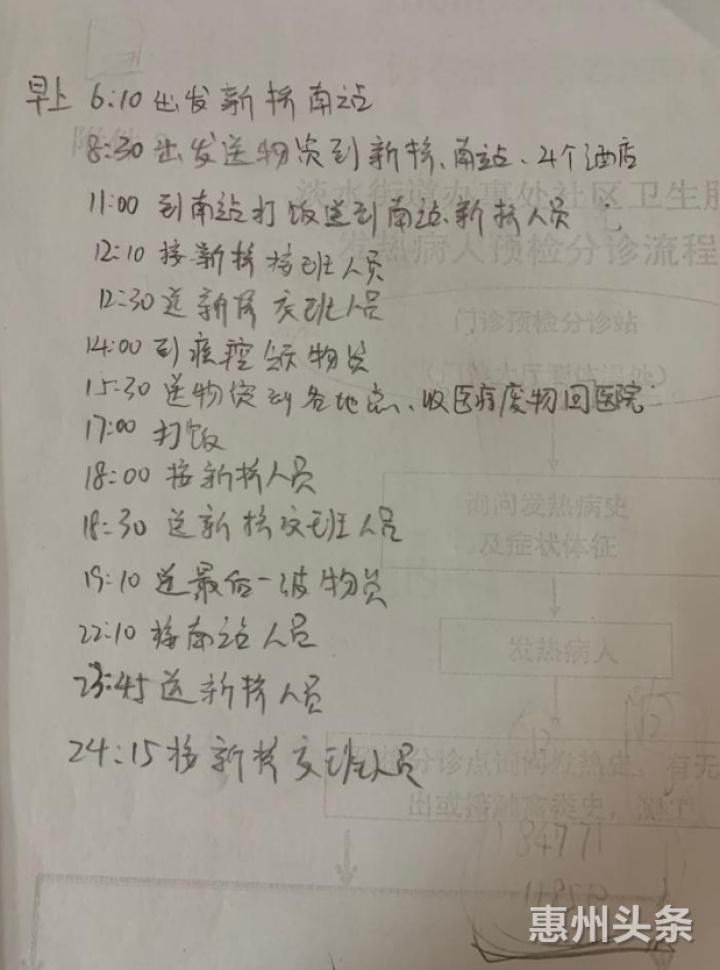 早上 6:10 出发新桥南站
8:30 出发送物资到新桥、南站、4个酒店
11:00 到南站打饭送到南站、新桥人员
12:10 接新桥接班人员
12:30 送新桥交班人员
14:00 到疾控领物资
15:30 送物资到各地点、收医疗废物回医院
17:00 打饭
18:00 接新桥人员
18:30 送新桥交班人员
19:10 送最后一波物资
22:10 接南站人员
23:45 送新桥人员
24:15 接新桥交班人员
淡水街道办事处社区卫生服
发热病人预检分诊流程
门诊预检分诊站
询问发热病史
及症状体征
发热病人
分诊点询问发热史、有无
84771
惠州头条